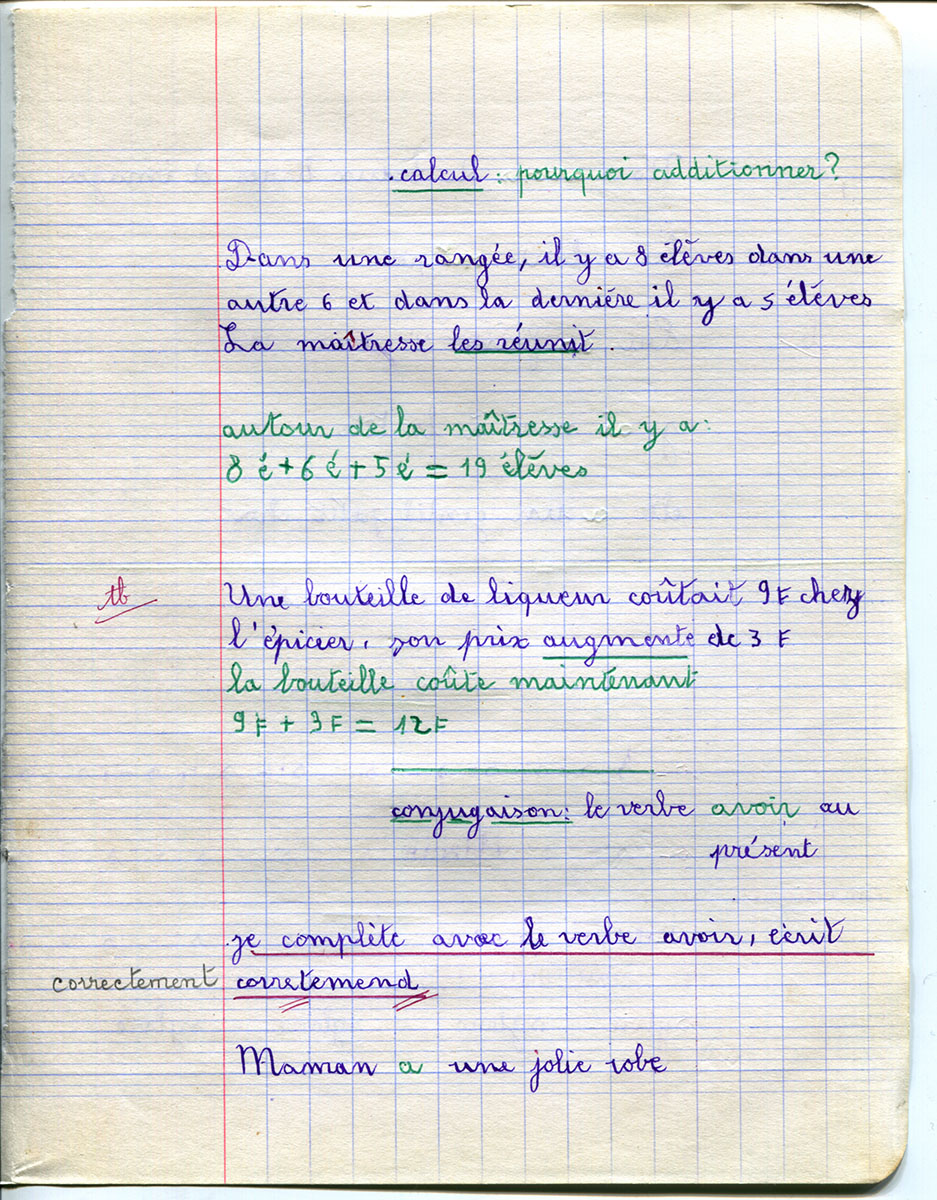 .calcul : pourquoi additionner ?
Dans une rangée, il y a 8 élèves dans une
autre 6 et dans la derniére il y a 5 élèves
La maîtresse les réunit .
autour de la maîtresse il y a :
8 é + 6 é + 5 é = 19 élèves
tb
Une bouteille de liqueur coûtait 9F chez
l'épicier, son prix augmente de 3 F
la bouteille coûte maintenant
9F + 3F = 12F
conjugaison : le verbe avoir au
présent
je complète avec le verbe avoir, écrit
correctement
corretemend
Maman a une jolie robe